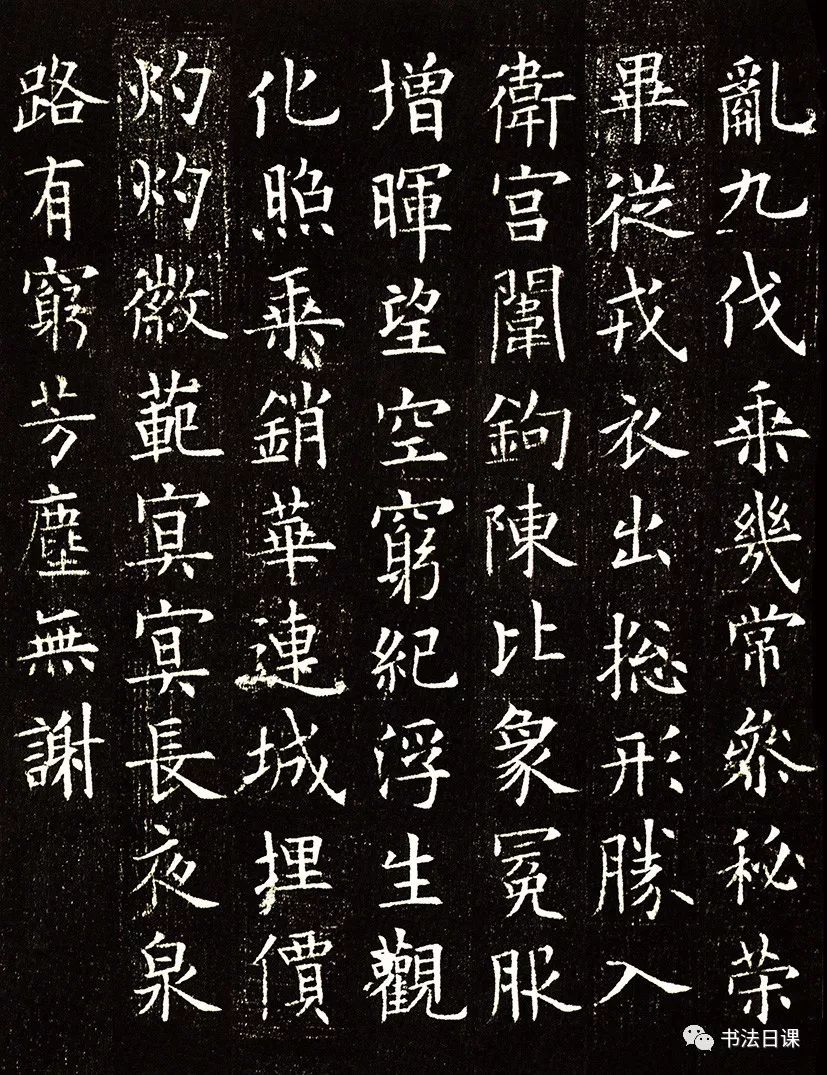 亂九伐乘幾常參秘荣
畢從戎衣出捴形勝入
衛宫闈鉤陳比象冕服
增暉望空窮紀浮生觀
化照乘銷華連城埋價
灼灼徽範寘寘長夜泉
路有窮芳塵無謝
书法日课